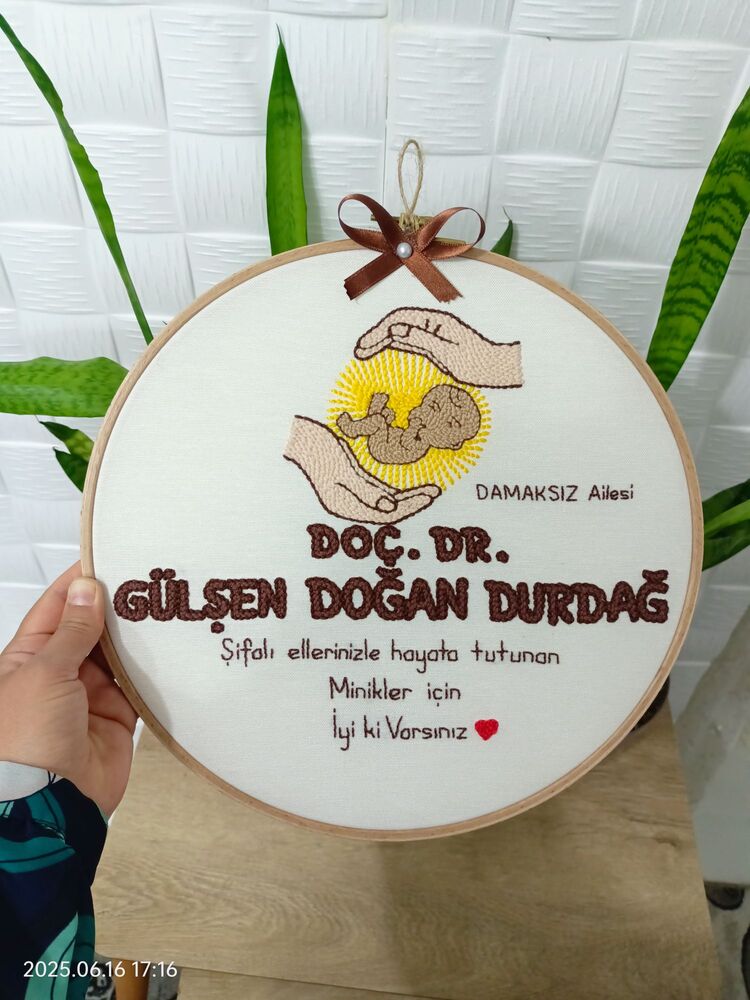 DAMAKSIZ Ailesi
DOÇ. DR.
GÜLŞEN DOĞAN DURDAĞ
Şifalı ellerinizle hayata tutunan
Minikler için
İyi ki Varsınız
2025.06.16 17:16